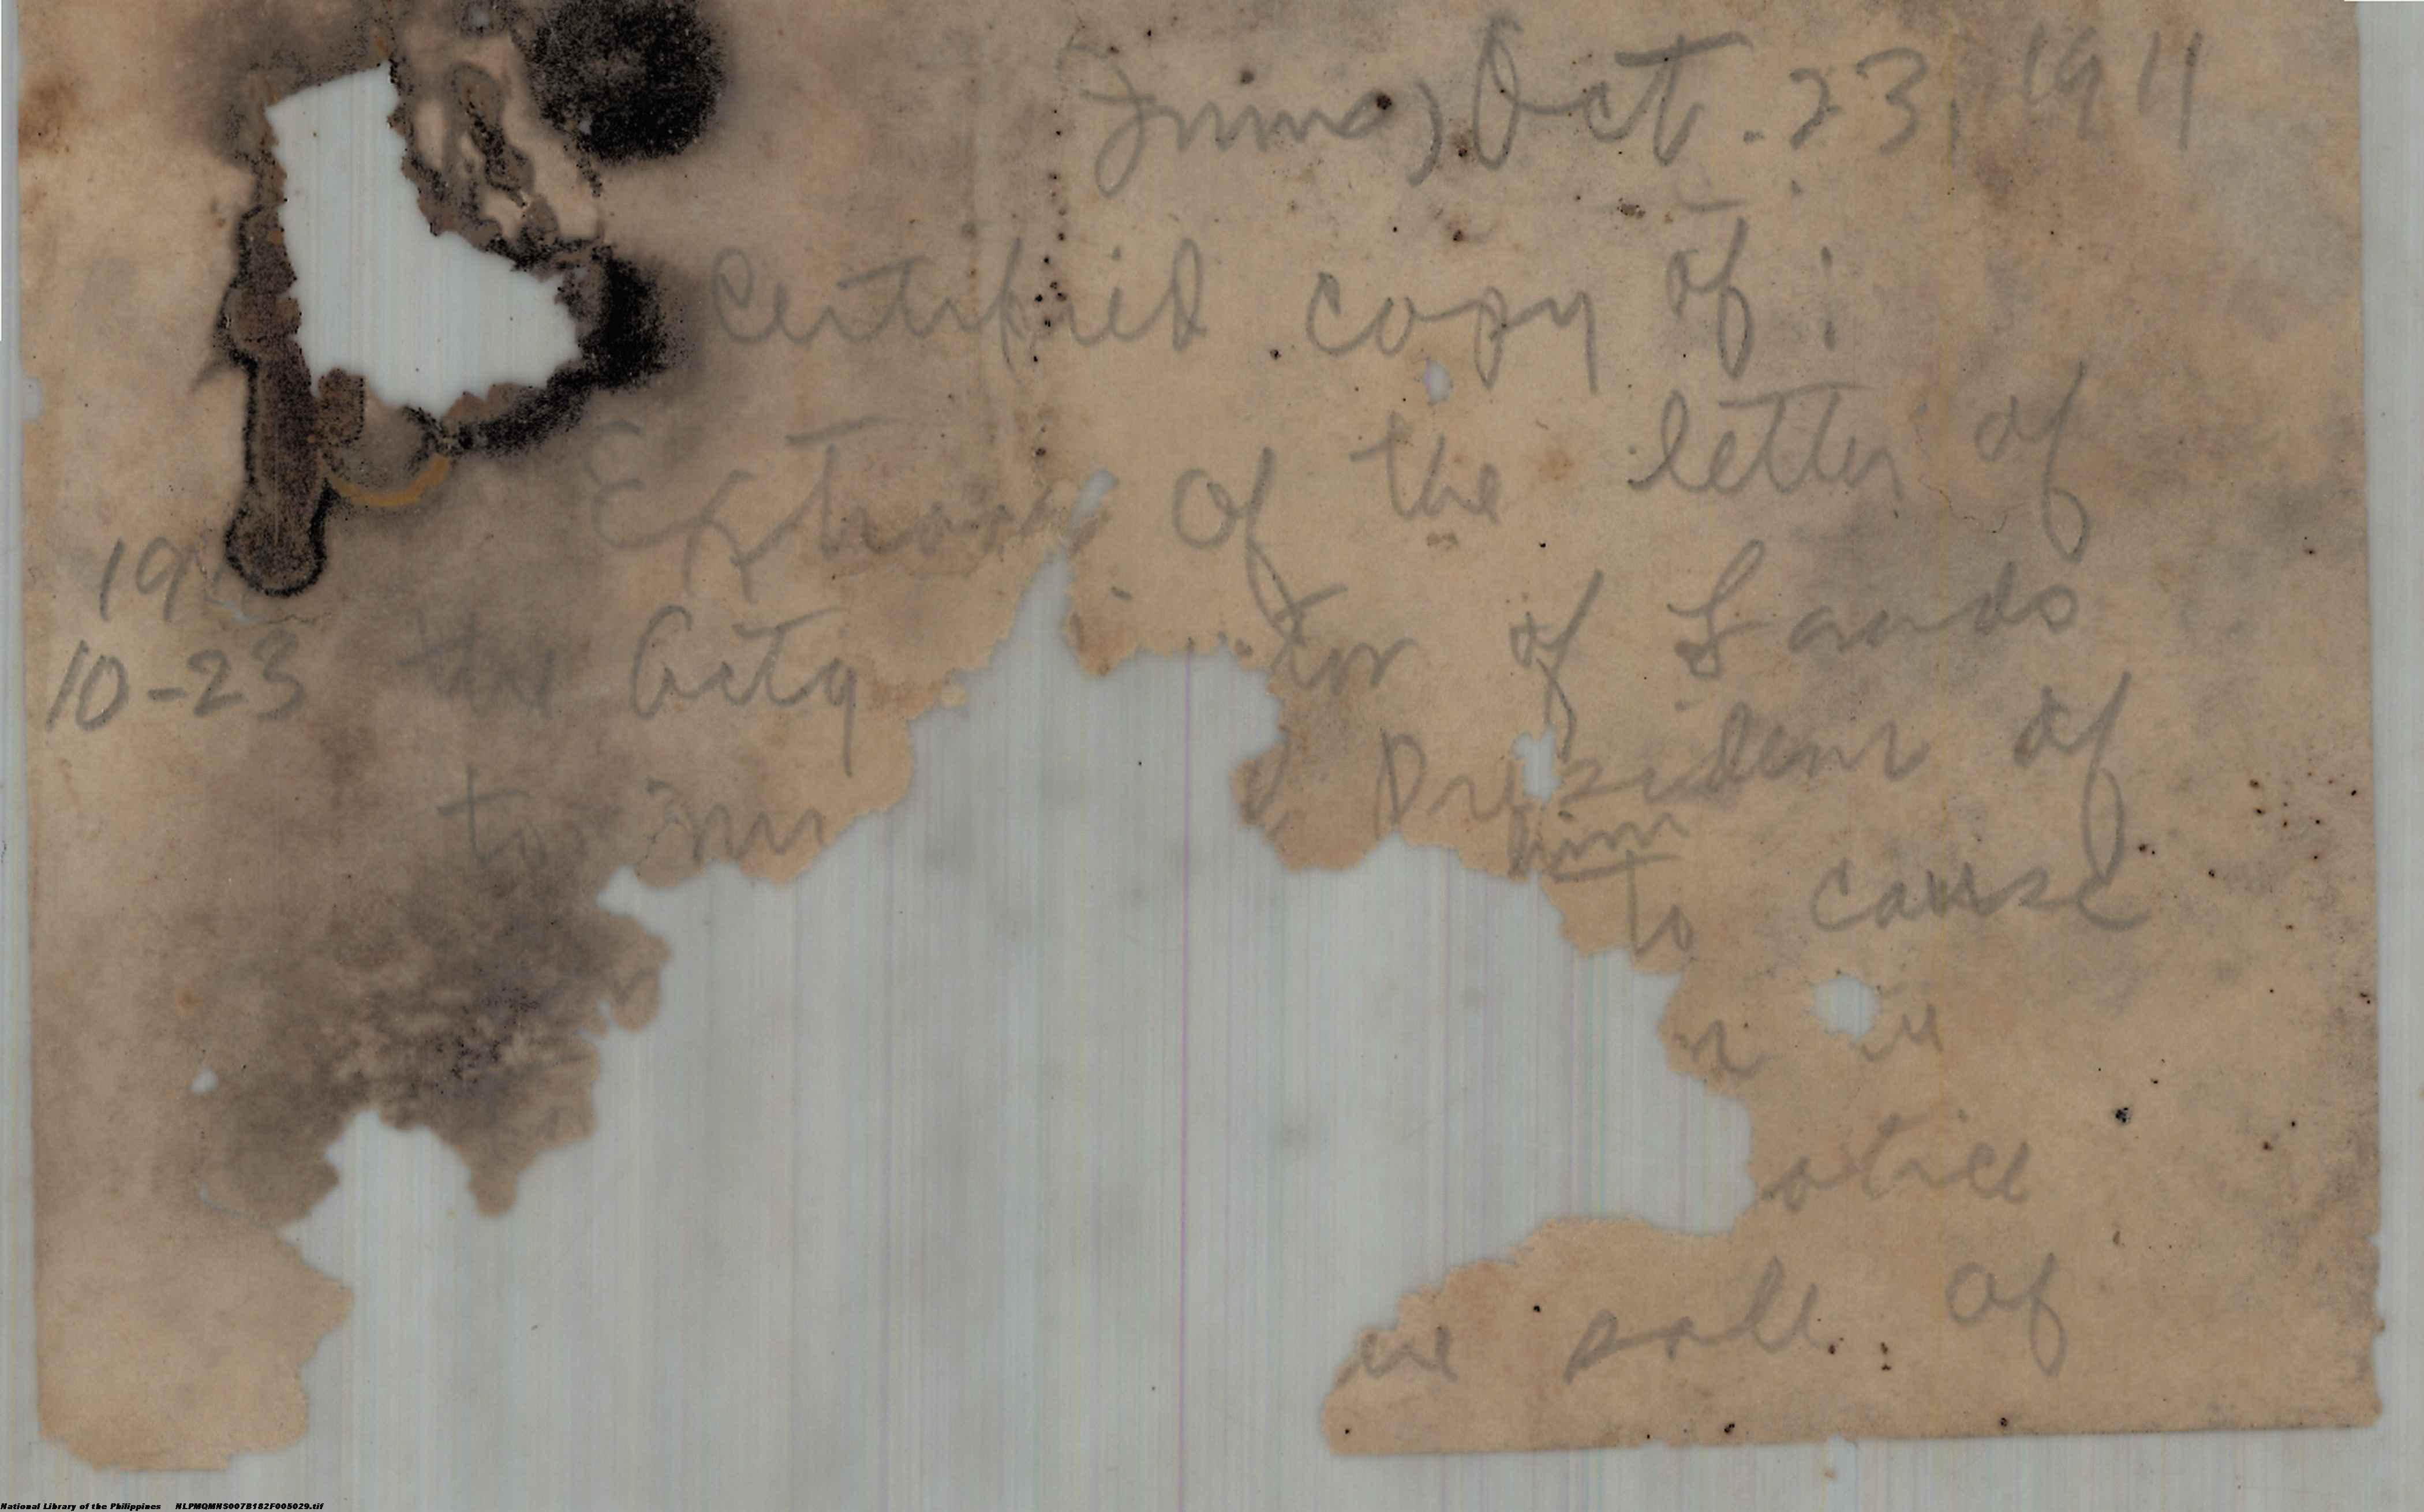 Imus, Oct. 23, 1911
Certified copy of:
Extract of the letter of
19
10-23 the Actg tor of Lands
to mu President of
him
to cause
n in
otice
ue sale of
National Library of the Philippines NLPMQMNS007B182F005029.tif